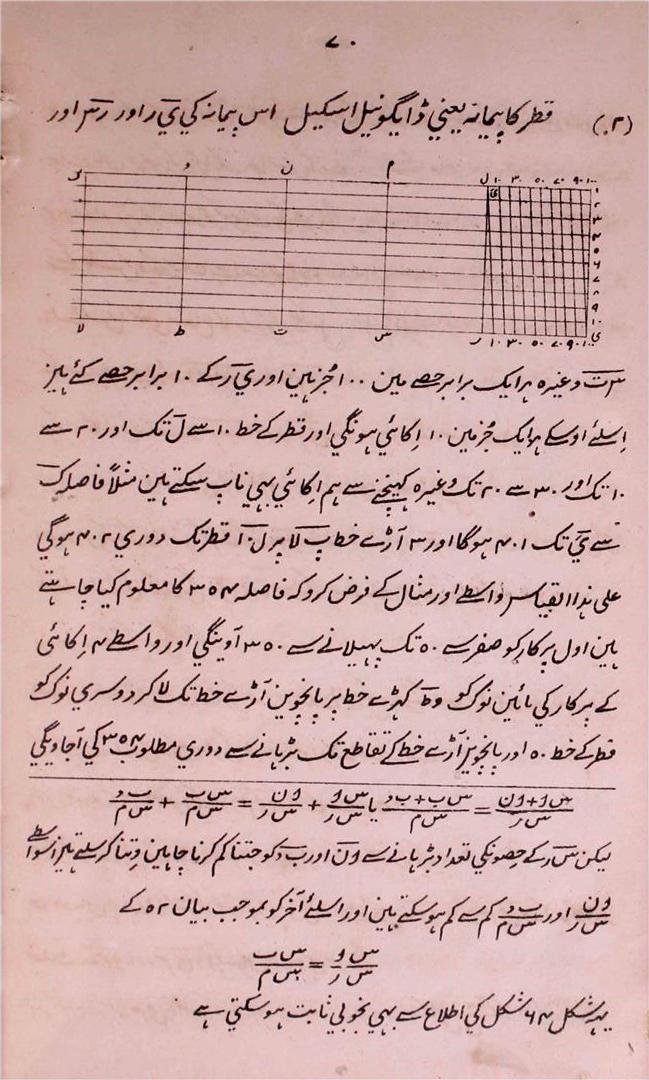 ۷۰
(۲) قطر کا پیمانہ یعني ڈایگونیل اسکیل اس پیمانہ کي يَ ر اور رَ سَ اور
ک و ن م ل ۱۰ ۳۰ ۵۰ ۷۰ ۹۰ ۱۰۰
۱
۲
۳
۴
۵
۶
۷
۸
۹
۱۰
لا ط ت س ر ۱۰ ۳۰ ۵۰ ۷۰ ۹۰ ۱۰۰ ي
سَ تَ وغیرہ ہر ایک برابر حصے مین ۱۰۰ جُز ہین اور ي رَ کے ۱۰ برابر حصے کئے ہین
اِسلئے اوسکے ہر ایک جُز مین ۱۰ اِکائي ہونگي اور قطر کے خط ۱۰ سے لَ تک اور ۲۰ سے
۱۰ تک اور ۳۰ سے ۲۰ تک وغیرہ کہینچنے سے ہم اِکائي بہي ناپ سکتے ہین مثلاً فاصلہ کَ
سے يَ تک ۴۰۱ ہوگا اور ۳ آڑے خط پ لا پر ل ۱۰ قطر تک دوري ۴۰۲ ہوگي
علی ہذا القیاس واسطے اور مثال کے فرض کرو کہ فاصلہ ۳۵۴ کا معلوم کیا چاہتے
ہین اول پرکار کو صفر سے ۵۰ تک پہیلانے سے ۳۵۰ آوینگي اور واسطے ۴ اِکائي
کے پرکار کي بائین نوک کو وَ طَ کہڑے خط پر پانچوین آڑے خط تک لا کر دوسري نوک کو
قطر کے خط ۵۰ اور پانچوین آڑے خط کے تقاطع تک بڑہانے سے دوري مطلوب ۳۵۴ کي آجاویگي
س و + و ن / س ر = س ب + ب د / س م یا س و / س ر + و ن / س ر = س ب / س م + ب د / س م
لیکن سَ رَ کے حِصونکي تعداد بڑہانے سے و نَ اور ب دَ کو جتنا کم کرنا چاہین وِتنا کر سکتے ہین اسواسطے
و ن / س ر اور ب د / س م کم سے کم ہو سکتے ہین اور اسلئے آخر کو بموجب بیان ۵۲ کے
س و / س ر = س ب / س م
یہہ شکل ۶۴ شکل کي اطلاع سے بہي بخوبي ثابت ہو سکتي ہے